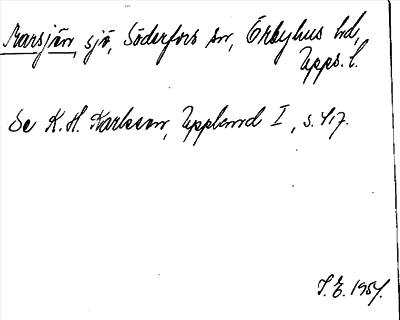 Marsjön, sjö, Söderfors sn, Örbyhus hd,
Upps. l.
Se K. H. Karlsson, Uppland I, s. 417.
1954.